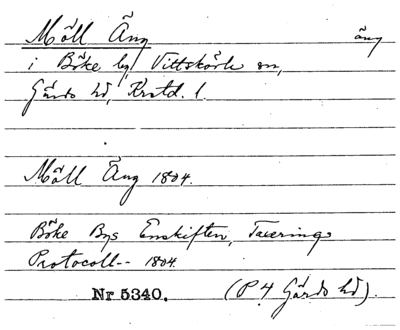 Möll Äng äng
i Böke by, Vittskövle sn,
Gärds hd, Krstd. l.
Möll Äng 1804.
Böke Bys Enskiften, Taxerings
Protocoll-- 1804.
Nr 5340. (P 4 Gärds hd).